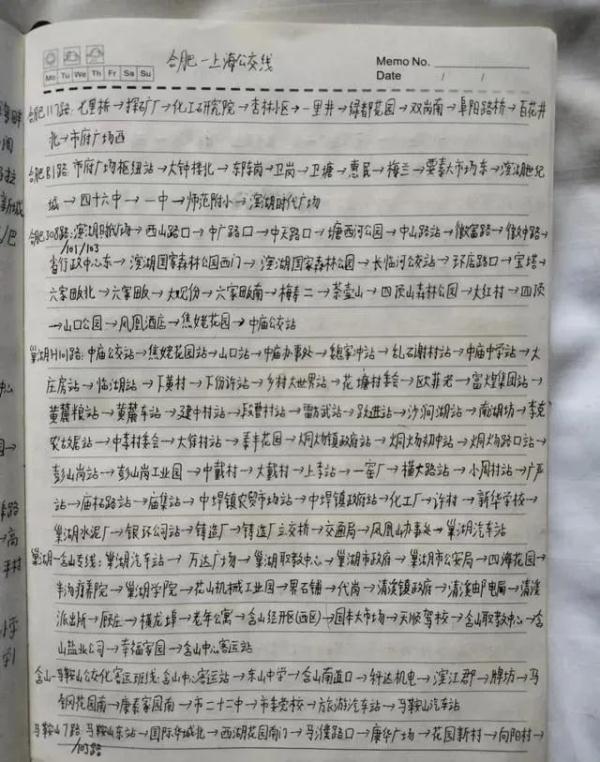 合肥—上海公交线
Memo No.
Mo Tu We Th Fr Sa Su
Date / /
合肥117路：七里桥→探矿厂→化工研究院→杏林小区→一里井→绿都花园→双岗南→阜阳路桥→百花井
北→市府广场西
合肥B1路 市府广场枢纽站→大钟楼北→东陈岗→卫岗→卫塘→惠民→梅兰→要素大市场东→滨湖世纪
城→四十六中→一中→师范附小→滨湖时代广场
合肥308路：滨湖时代广场→西山路口→中广路口→中天路口→塘西河公园→中山路站→徽富路→
/101/103
省行政中心东→滨湖国家森林公园西门→滨湖国家森林公园→长临河公交站→环店路口→宝塔→
六家畈北→六家畈→大现份→六家畈南→梅寿二→茶壶山→四顶山森林公园→大红村→四顶
→山口公园→凤凰酒店→焦姥花园→中庙公交站
巢湖H101路：中庙公交站→焦姥花园站→山口站→中庙办事处→魏家冲站→乱石谢村站→中庙中学站→大
庄房站→临湖站→下黄村→下份许站→乡村大世界站→花塘村委会→欧菲老→富煌集团站→
黄麓粮站→黄麓车站→建中村站→跃进站→沙涧湖站→南湖坊→李克
农故居站→中李村委会→大俊村站→泰丰花园→烔炀镇政府站→烔炀初中站→烔炀路口站→
彭山岗站→彭山岗工业园→中戴村→大戴村→上李站→一窑厂→横大路站→小周村站→广严
站→庙拓路站→庙集站→中垾镇农贸市场站→中垾镇政府站→化工厂→许村→新华学校→
巢湖水泥厂→银环公司站→铸造厂→铸造厂立交桥→交通局→凤凰山办事处→巢湖汽车站
巢湖-含山专线：巢湖汽车站→万达广场→巢湖职教中心→巢湖市政府→巢湖市公安局→四海花园→
半汤疗养院→巢湖学院→花山机械工业园→界石铺→代岗→清溪镇政府→清溪邮电局→清溪
派出所→殷庄→横龙埠→老年公寓→含山经开区(西区)→国丰大市场→天顺驾校→含山职教中心→含
山盐业公司→幸福家园→含山中心客运站
含山-马鞍山公交化客运班线：含山中心客运站→东山中学→含山南道口→轩达机电→滨江郡→牌坊→马
钢花园南→康泰家园南→市二十二中→市委党校→旅游汽车站→马鞍山汽车站
马鞍山7路 马鞍山东站→国际华城北→西湖花园南门→马濮路口→康华广场→花园新村→向阳村→
/103路